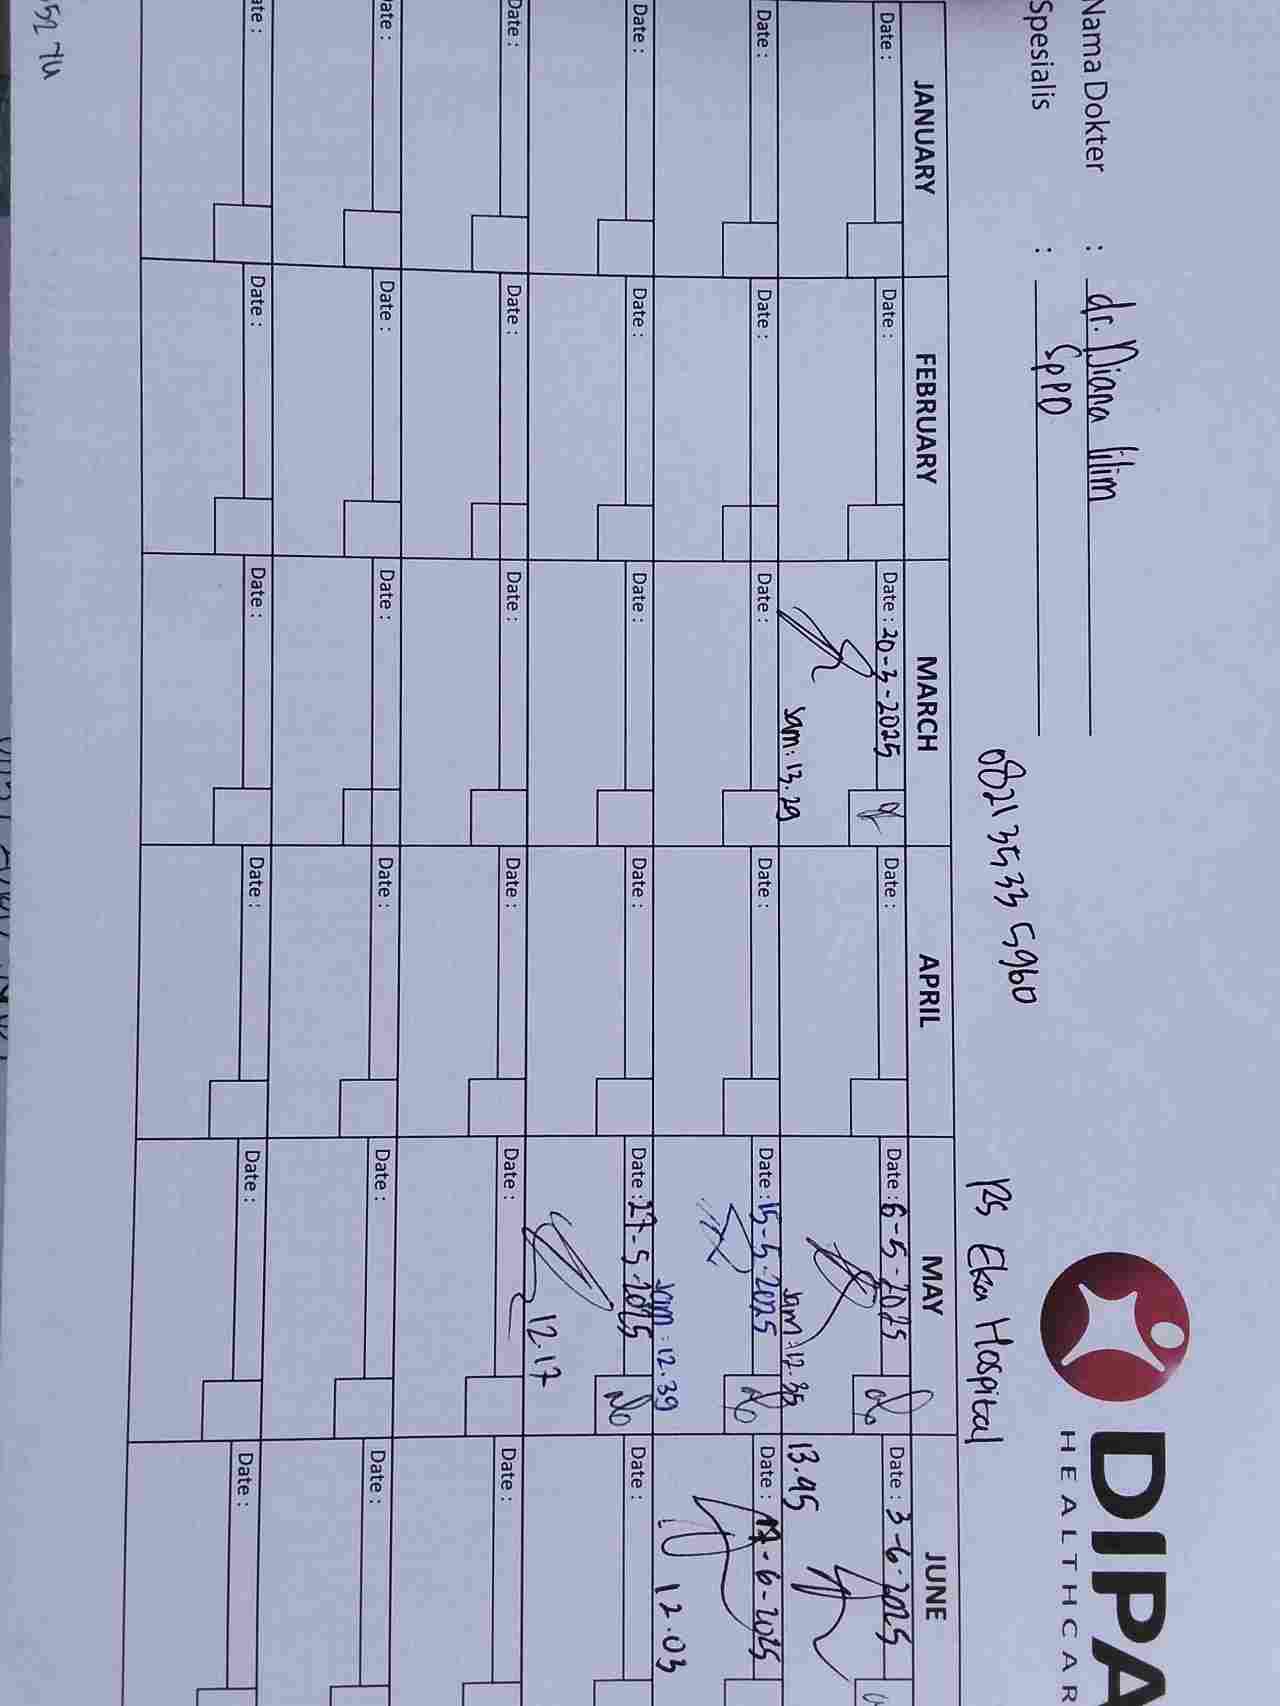 DIPA
HEALTHCAR
Nama Dokter : dr. Diana lilim
Spesialis : SpPD
0821 3533 5960
RS Eka Hospital
JANUARY FEBRUARY MARCH APRIL MAY JUNE
Date : Date : Date : 20-3-2025 Date : Date : 6-5-2025 Date : 3-6-2025
Jam : 13.29 Jam : 12.35 13.45
Date : Date : Date : Date : Date : 15-5-2025 Date : 17-6-2025
Jam : 12.39 12.03
Date : Date : Date : Date : Date : 27-5-2025 Date :
12.17
Date : Date : Date : Date : Date : Date :
Date : Date : Date : Date : Date : Date :
ate : Date : Date : Date : Date : Date :